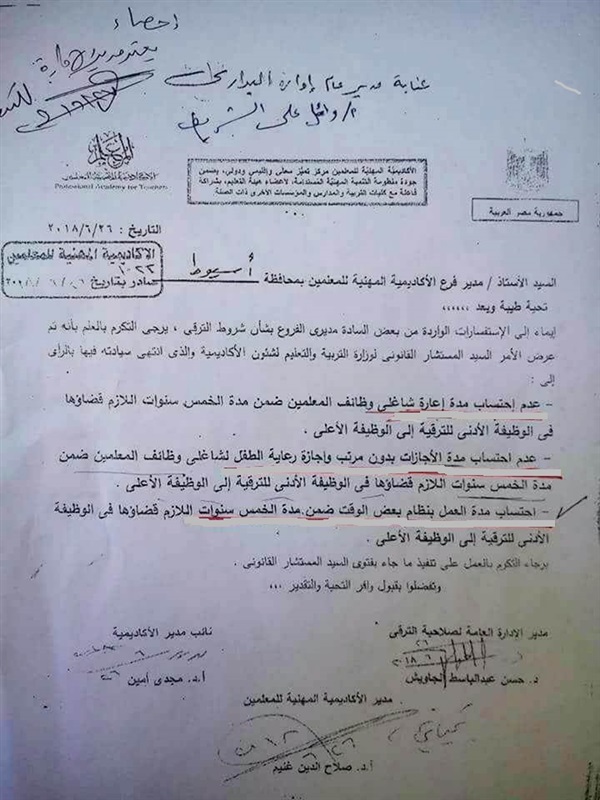 إحصاء
يعتمد مدير الإدارة
عناية مدير عام إدارة البدارى
أ/ وائل على الشريف
الأكاديمية المهنية للمعلمين
Professional Academy for Teachers
الأكاديمية المهنية للمعلمين مركز تميز محلى وإقليمي ودولي، يضمن
جودة منظومة التنمية المهنية المستدامة، لأعضاء هيئة التعليم، بشراكة
فاعلة مع كليات التربية والمدارس والمؤسسات الأخرى ذات الصلة.
جمهورية مصر العربية
التاريخ : ٢٠١٨/٦/٢٦
الأكاديمية المهنية للمعلمين
١٠٢٣
صادر بتاريخ
السيد الأستاذ / مدير فرع الأكاديمية المهنية للمعلمين بمحافظة أسيوط
تحية طيبة وبعد ،،،،،،
إيماء إلى الإستفسارات الواردة من بعض السادة مديرى الفروع بشأن شروط الترقي ، يرجى التكرم بالعلم بأنه تم
عرض الأمر السيد المستشار القانونى لوزارة التربية والتعليم لشئون الأكاديمية والذى انتهى سيادته فيها بالرأى
إلى :
– عدم إحتساب مدة إعارة شاغلى وظائف المعلمين ضمن مدة الخمس سنوات اللازم قضاؤها
فى الوظيفة الأدنى للترقية إلى الوظيفة الأعلى .
– عدم احتساب مدة الأجازات بدون مرتب وإجازة رعاية الطفل لشاغلى وظائف المعلمين ضمن
مدة الخمس سنوات اللازم قضاؤها فى الوظيفة الأدنى للترقية إلى الوظيفة الأعلى .
– احتساب مدة العمل بنظام بعض الوقت ضمن مدة الخمس سنوات اللازم قضاؤها فى الوظيفة
الأدنى للترقية إلى الوظيفة الأعلى .
برجاء التكرم بالعمل على تنفيذ ما جاء بفتوى السيد المستشار القانونى .
وتفضلوا بقبول وافر التحية والتقدير ،،،
مدير الإدارة العامة لصلاحية الترقى
نائب مدير الأكاديمية
د. حسن عبدالباسط الجاويش
أ.د. مجدى أمين
مدير الأكاديمية المهنية للمعلمين
أ.د. صلاح الدين غنيم